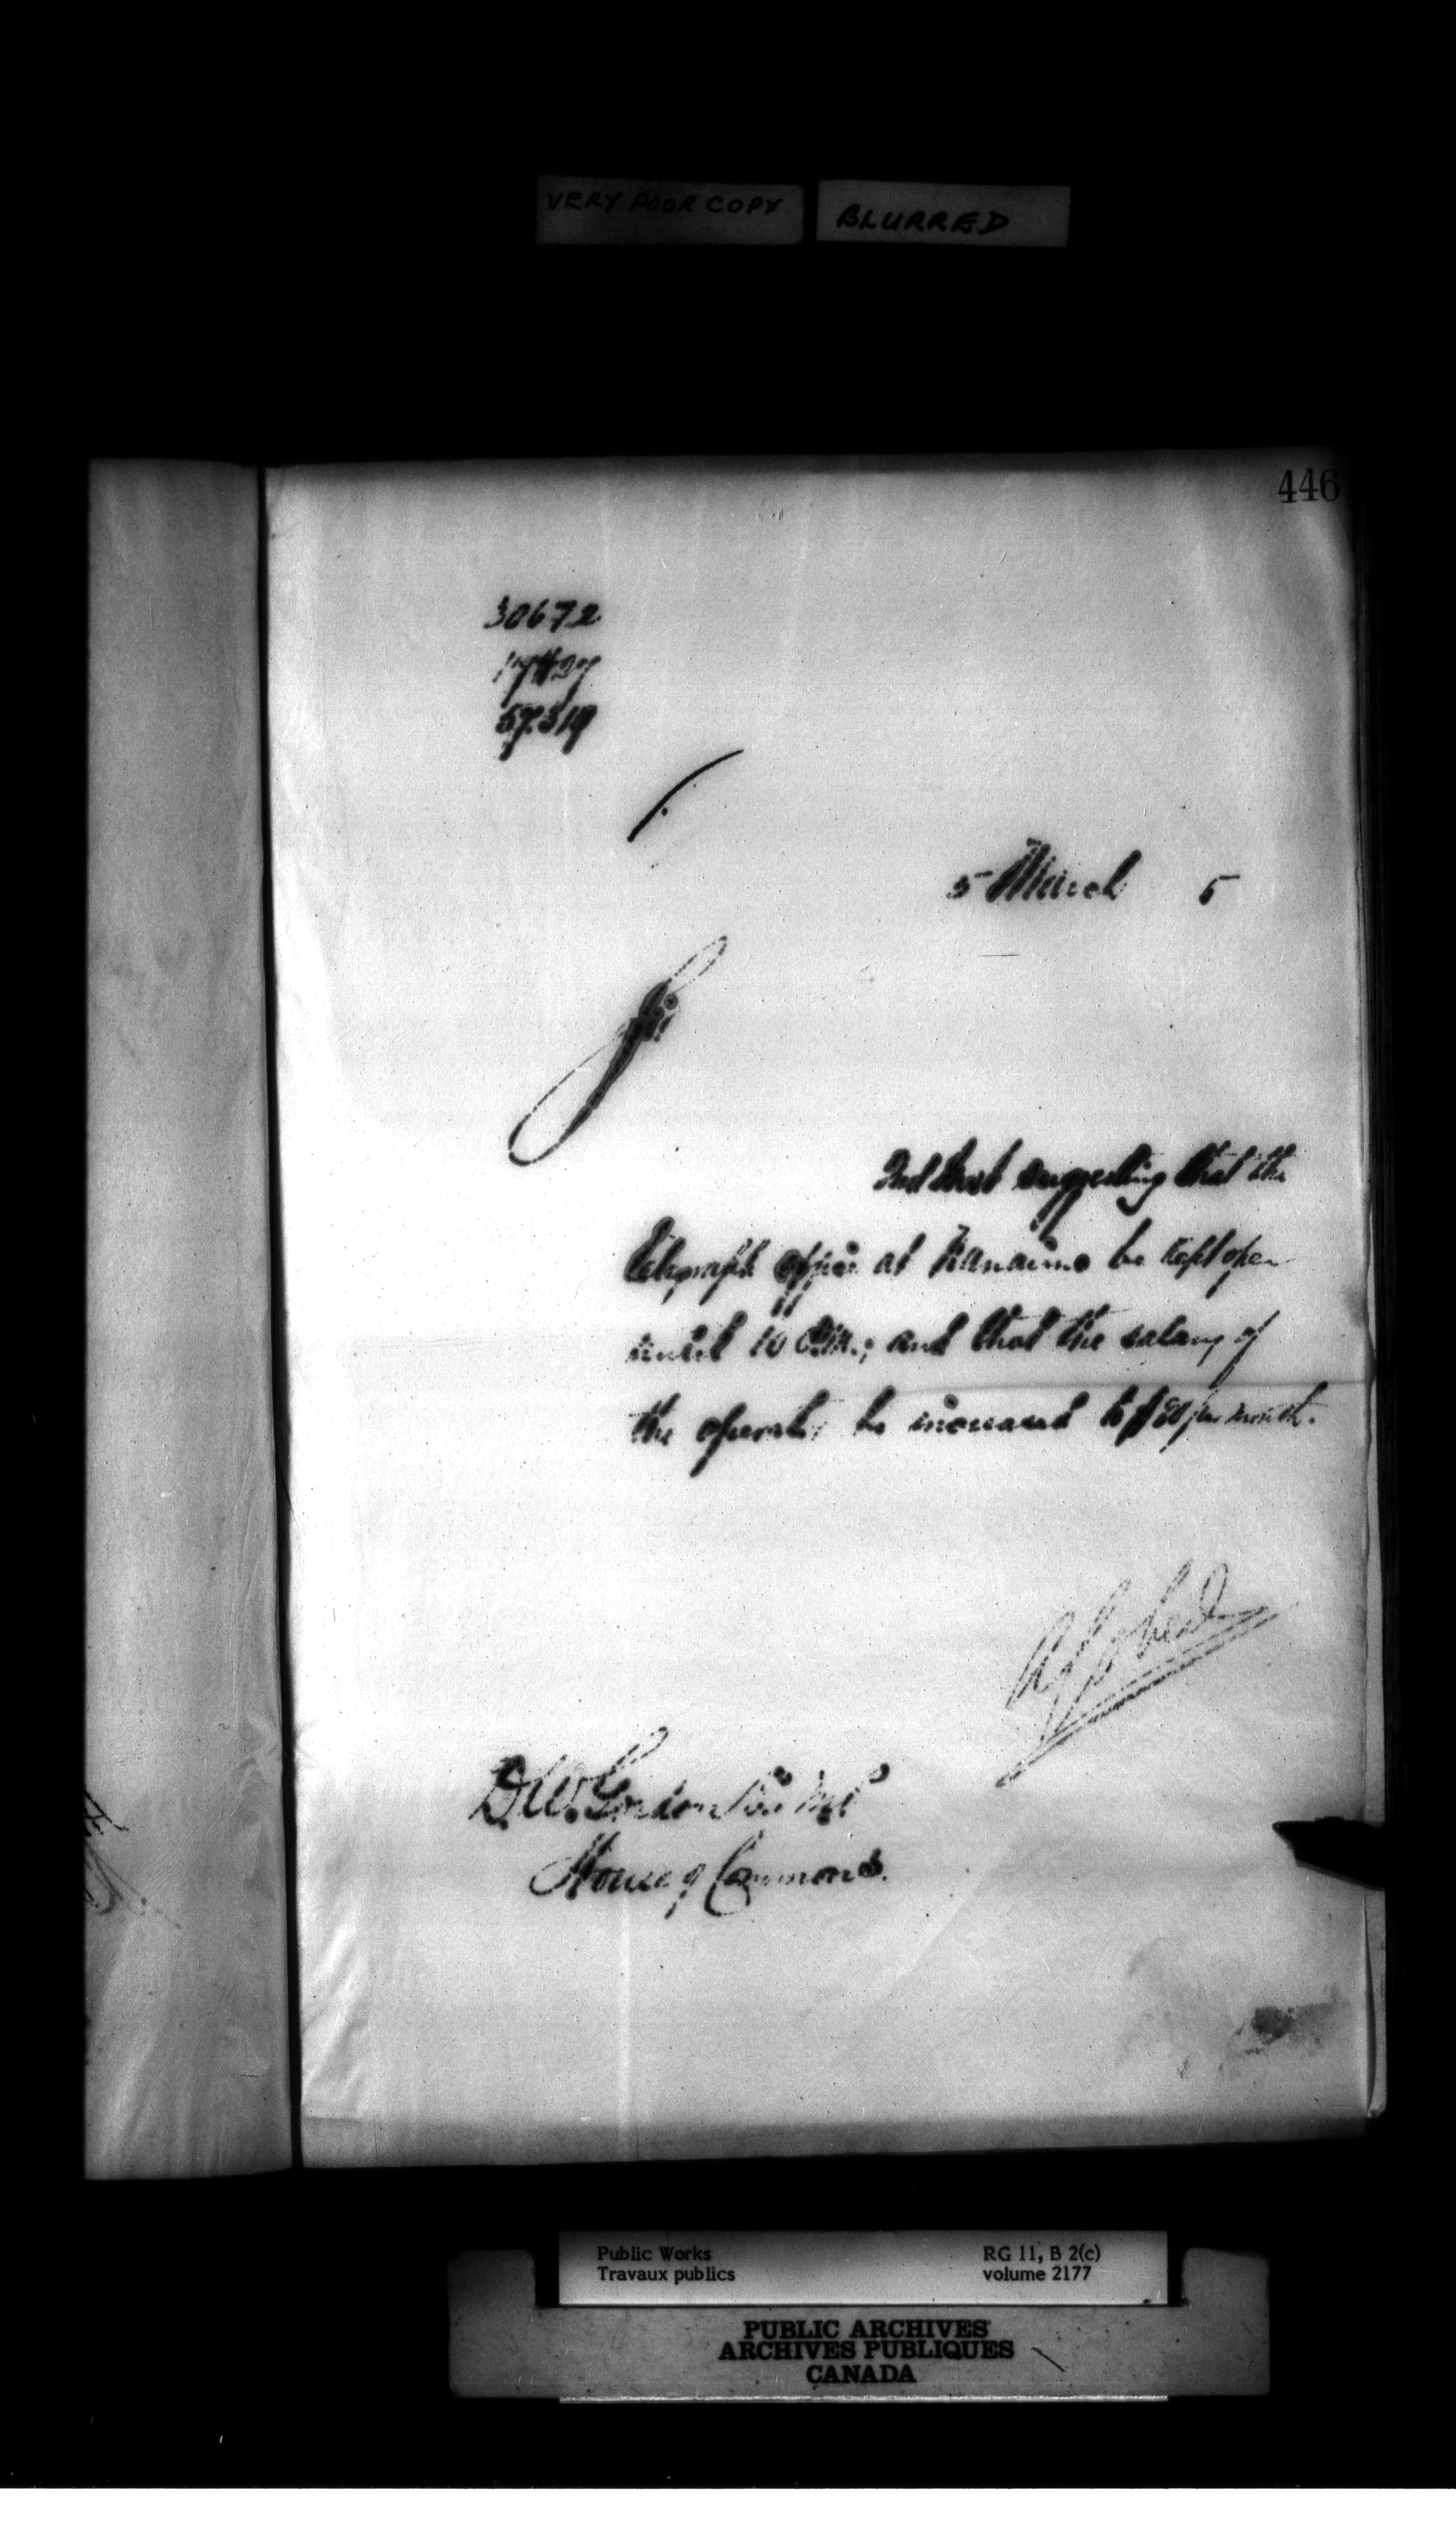 VERY POOR COPY BLURRED
446
30672
57319
5 March 5
2nd Inst suggesting that the
telegraph office at Nanaimo be kept open
until 10 P.M.; and that the salary of
the operator be increased to $80 per month.
D.W. Gordon Esq M.P.
House of Commons.
Public Works RG 11, B 2(c)
Travaux publics volume 2177
PUBLIC ARCHIVES
ARCHIVES PUBLIQUES
CANADA